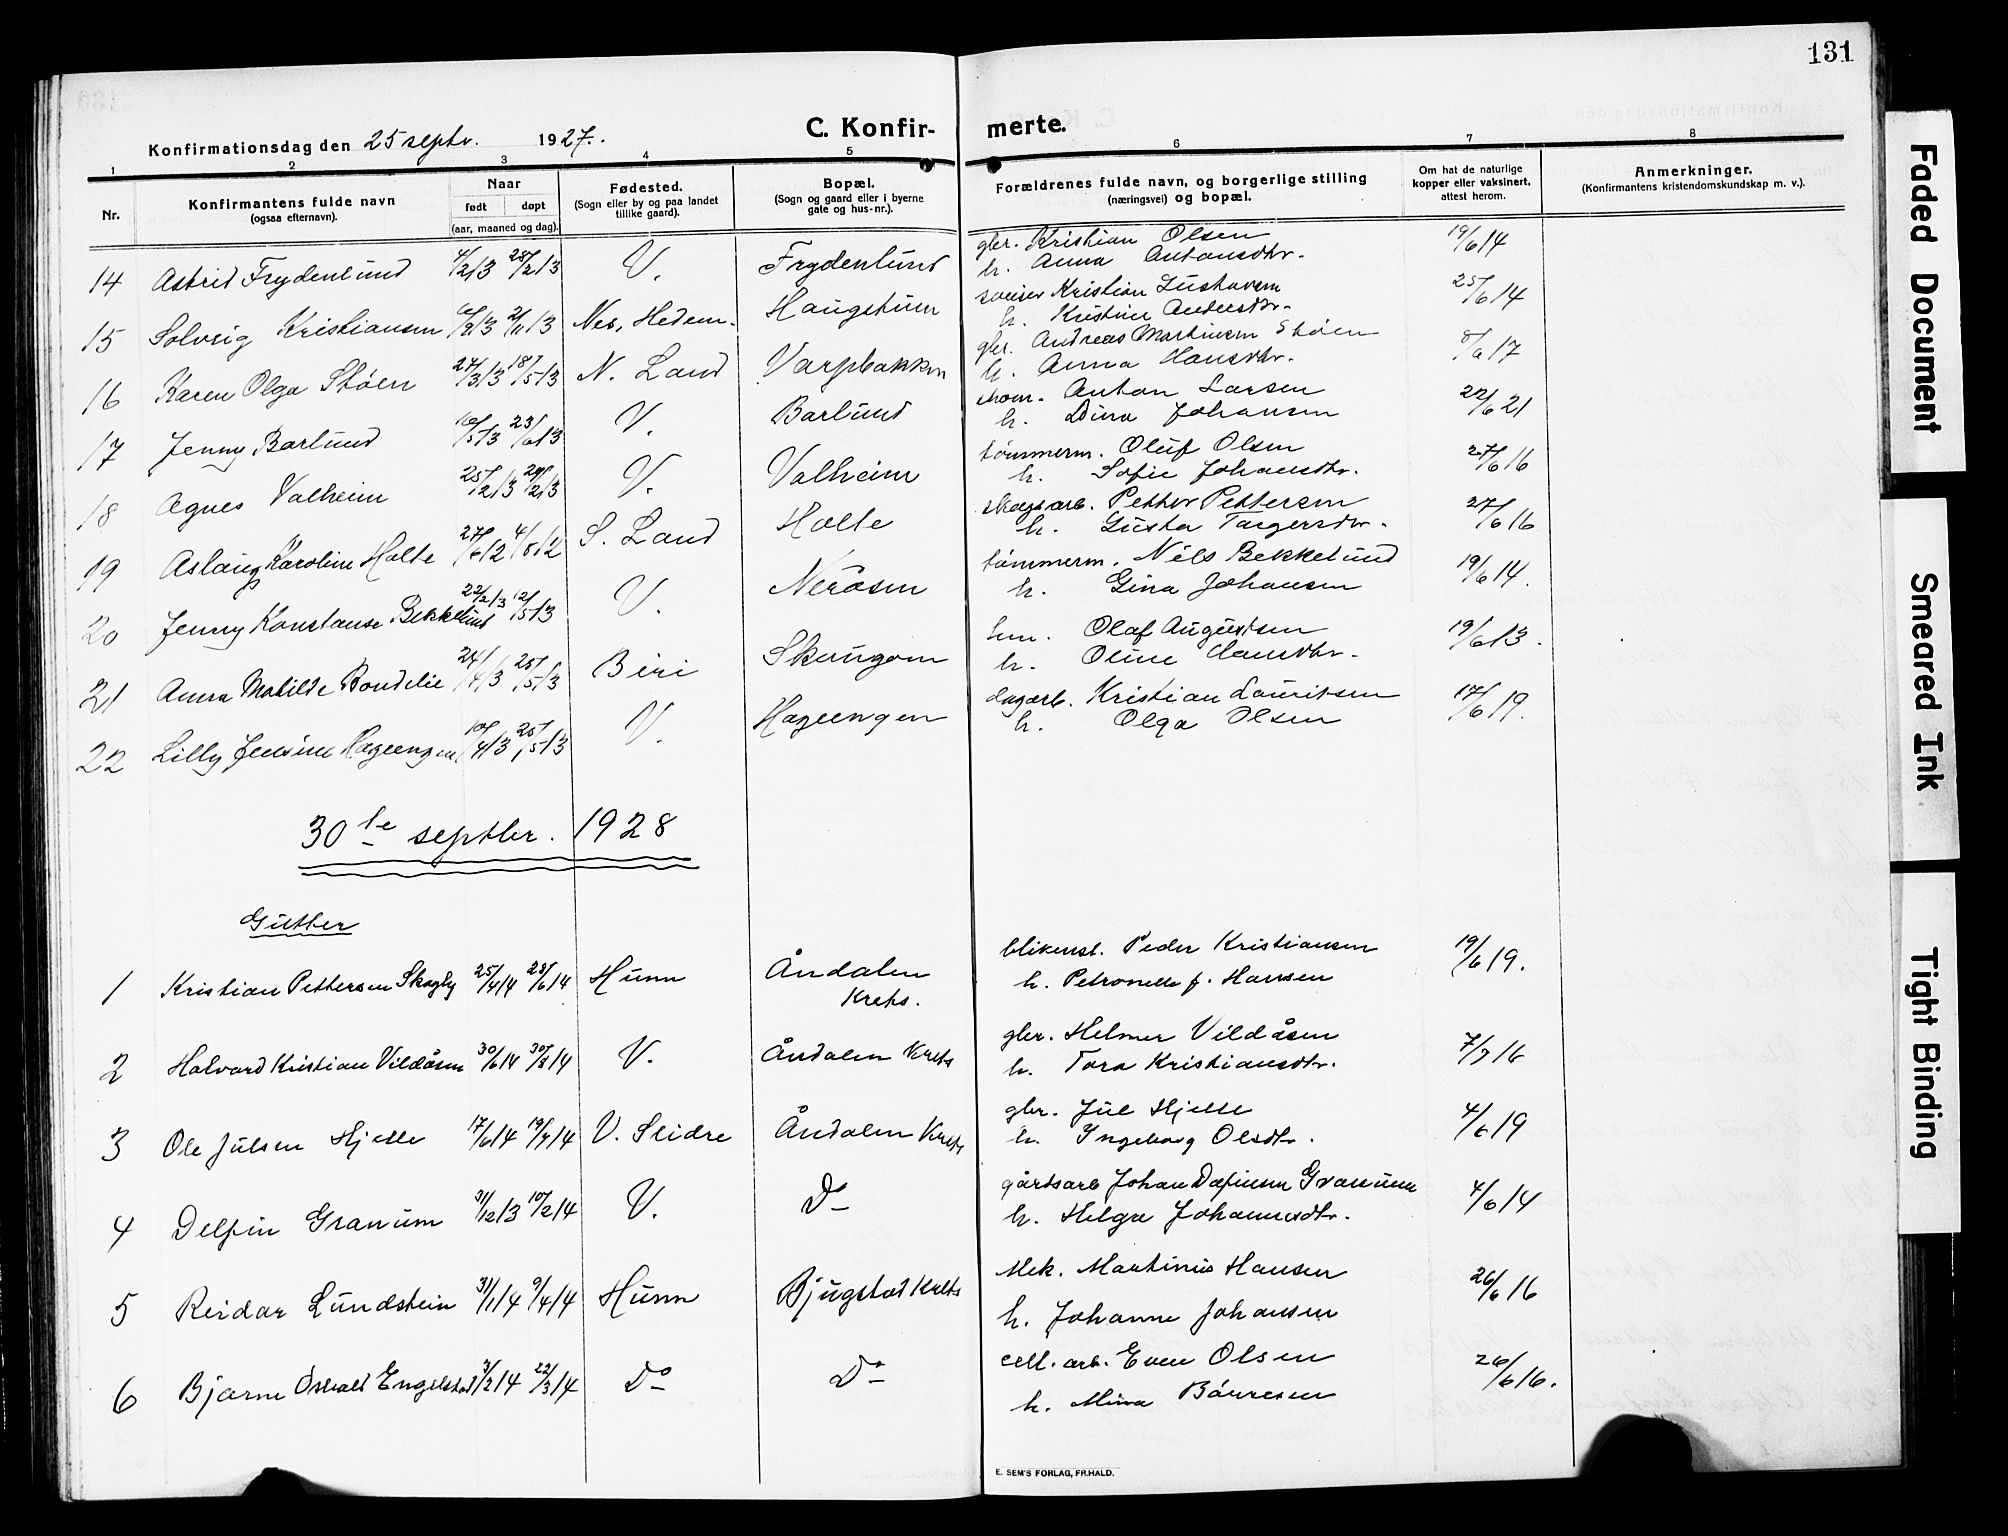 131
Konfirmationsdag den 25 septr. 1927.
C. Konfirmerte.
1 2 3 4 5 6 7 8
Nr.
Konfirmantens fulde navn
(ogsaa efternavn).
Naar
født døpt
(aar, maaned og dag).
Fødested.
(Sogn eller by og paa landet
tillike gaard).
Bopæl.
(Sogn og gaard eller i byerne
gate og hus-nr.).
Forældrenes fulde navn, og borgerlige stilling
(næringsvei) og bopæl.
Om hat de naturlige
kopper eller vaksinert,
attest herom.
Anmerkninger.
(Konfirmantens kristendomskundskap m. v.).
14 Astrid Frydenlund 4/2 13 23/2 13 V. Frydenlund gbr. Kristian Olsen 19/6 14
h. Anna Antonsdtr.
15 Solveig Kristiansen 2/11 13 Nes, Hedem. Haugstuen sveiser Kristian Gustavsen 25/6 14
h. Kristine Andersdtr.
16 Karen Olga Støen 27/3 13 18/5 13 N. Land Varpbakken gbr. Andreas Martinsen Støen 8/6 17
h. Anna Hansdtr.
17 Jenny Barlund 16/5 13 23/6 13 V. Barlund Anton Larsen 22/6 21
h. Dina Johansen
18 Agnes Valheim 25/12 13 V. Valheim tømmerm. Oluf Olsen 27/6 16
h. Sofie Johansdtr.
19 Aslaug Karoline Holte 27/6 12 4/8 12 S. Land Holte skogsarb. Petter Pettersen 27/6 16
h. Gusta Torgersdtr.
20 Jenny Konstanse Bekkelund 22/2 13 12/5 13 V. Neråsen tømmerm. Nils Bekkelund 19/6 14.
h. Gina Johansen
21 Anna Matilde Bondelie 24/4 13 25/5 13 Biri Skaugom Olaf Augustsen 19/6 13.
h. Oline Hansdtr.
22 Lilly Jensine Hageengen 10/4 13 25/5 13 V. Hageengen dagarb. Kristian Lauritsen 17/6 19.
h. Olga Olsen
30te septbr. 1928
Gutter
1 Kristian Pettersen Skogly 25/4 14 28/6 14 Hunn Åndalen blikensl. Peder Kristiansen 19/6 19.
Krets. h. Petronelle f. Hansen
2 Halvard Kristian Vildåsen 30/6 14 30/8 14 V. Åndalen Krets gbr. Helmer Vildåsen 7/7 16
h. Tora Kristiansdtr.
3 Ole Julsen Hjelle 17/6 14 19/7 14 V. Slidre Åndalen Krets gbr. Jul Hjelle 4/6 19
h. Ingeborg Olsdtr.
4 Delfin Granum 31/12 13 10/2 14 V. Do gårdsarb Johan Delfinsen Granum 4/6 14
h. Helga Johannesdtr.
5 Reidar Lundstein 31/1 14 9/4 14 Hunn Bjugstad Krets Mek. Martinius Hansen 26/6 16
h. Johanne Johansen
6 Bjarne Osvald Engelstad 3/2 14 22/3 14 Do Do cell. arb. Even Olsen 26/6 16.
h. Mina Børresen
E. SEM'S FORLAG, FR.HALD.
Faded Document
Smeared Ink
Tight Binding